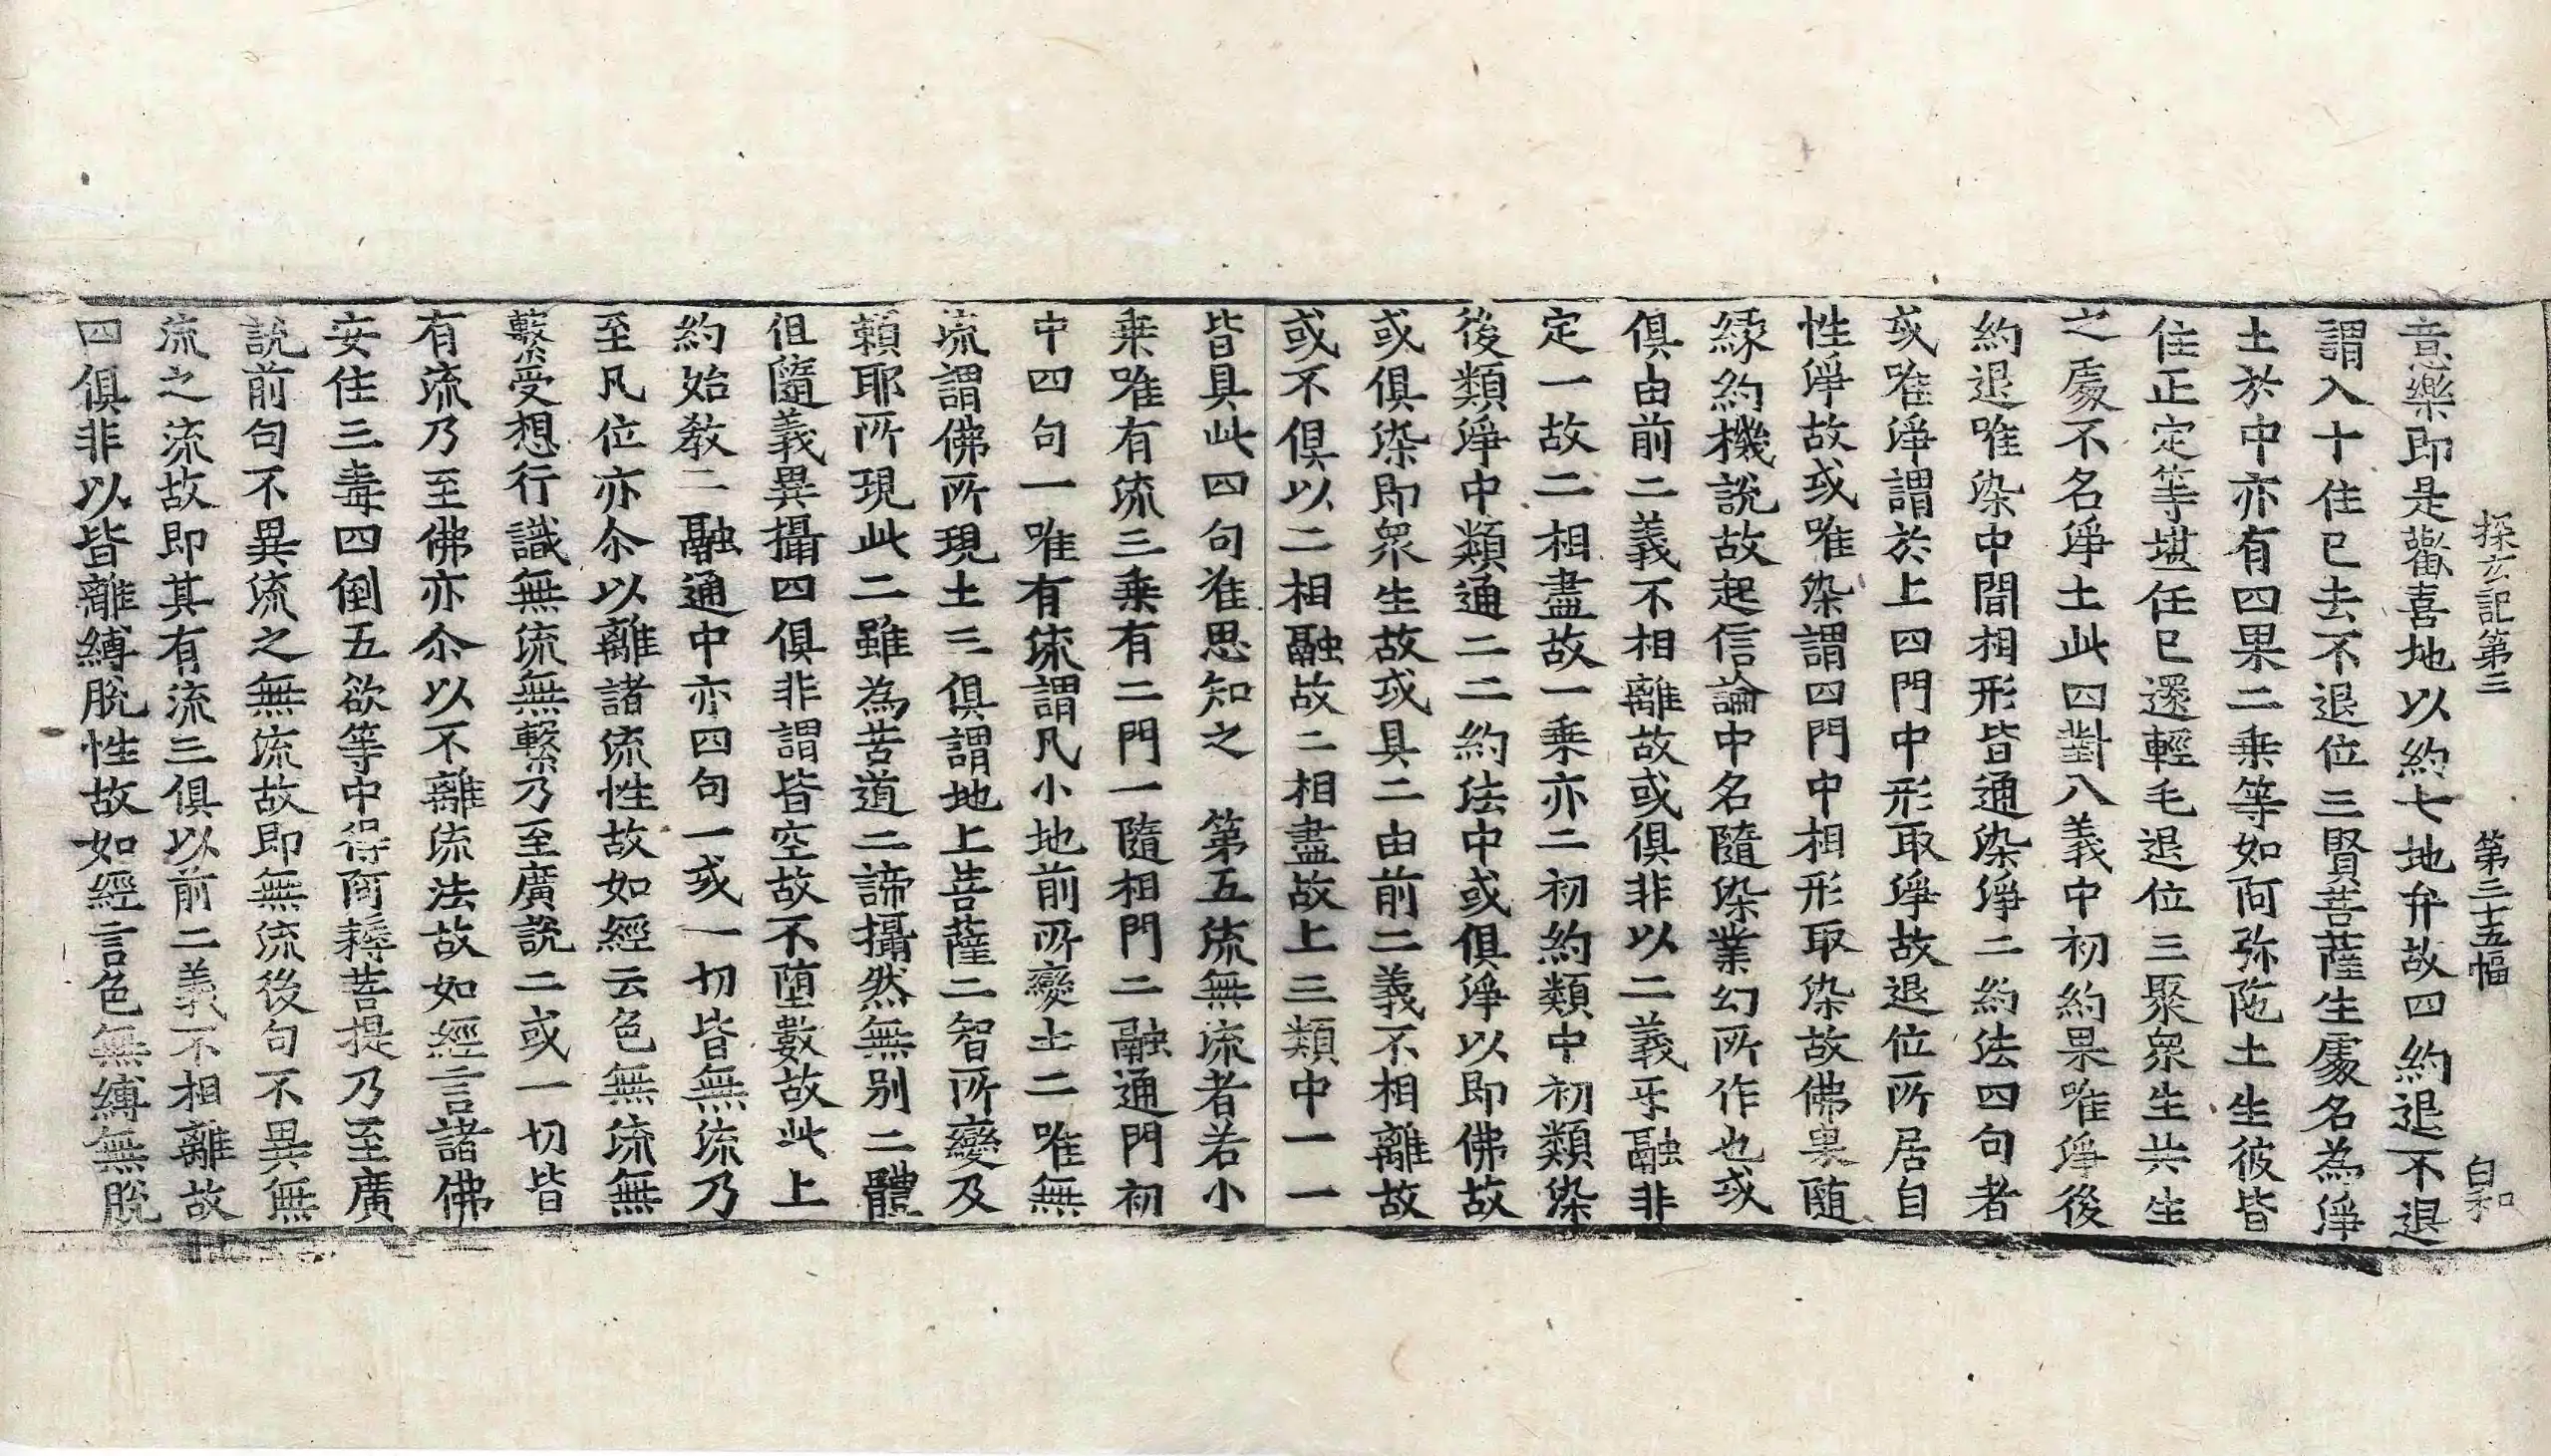 探玄記第三 第三十五幅 白和
意樂即是歡喜地以約七地弁故四約退不退
謂入十住已去不退位三賢菩薩生䖏名為淨
土於中亦有四果二乘等如阿弥陁土生彼皆
住正定等堪任已還輕毛退位三聚衆生共生
之䖏不名淨土此四對八義中初約果唯淨後
約退唯染中間相形皆通染淨二約法四句者
或唯淨謂於上四門中形取淨故退位所居自
性淨故或唯染謂四門中相形取染故佛果随
緣約機說故起信論中名隨染業幻所作也或
俱由前二義不相離故或俱非以二義㸦融非
定一故二相盡故一乘亦二初約類中初類染
後類淨中類通二二約法中或俱淨以即佛故
或俱染即衆生故或具二由前二義不相離故
或不俱以二相融故二相盡故上三類中一一
皆具此四句准思知之　第五流無流者若小
乘唯有流三乘有二門一隨相門二融通門初
中四句一唯有流謂凡小地前所變土二唯無
流謂佛所現土三俱謂地上菩薩二智所變及
賴耶所現此二雖為苦道二諦攝然無别二體
但隨義異攝四俱非謂皆空故不墮數故此上
約始教二融通中亦四句一或一切皆無流乃
至凡位亦尒以離諸流性故如經云色無流無
繫受想行識無流無繫乃至廣說二或一切皆
有流乃至佛亦尒以不離流法故如經言諸佛
安住三毒四倒五欲等中得阿耨菩提乃至廣
說前句不異流之無流故即無流後句不異無
流之流故即其有流三俱以前二義不相離故
四俱非以皆離縛脫性故如經言色無縛無脫